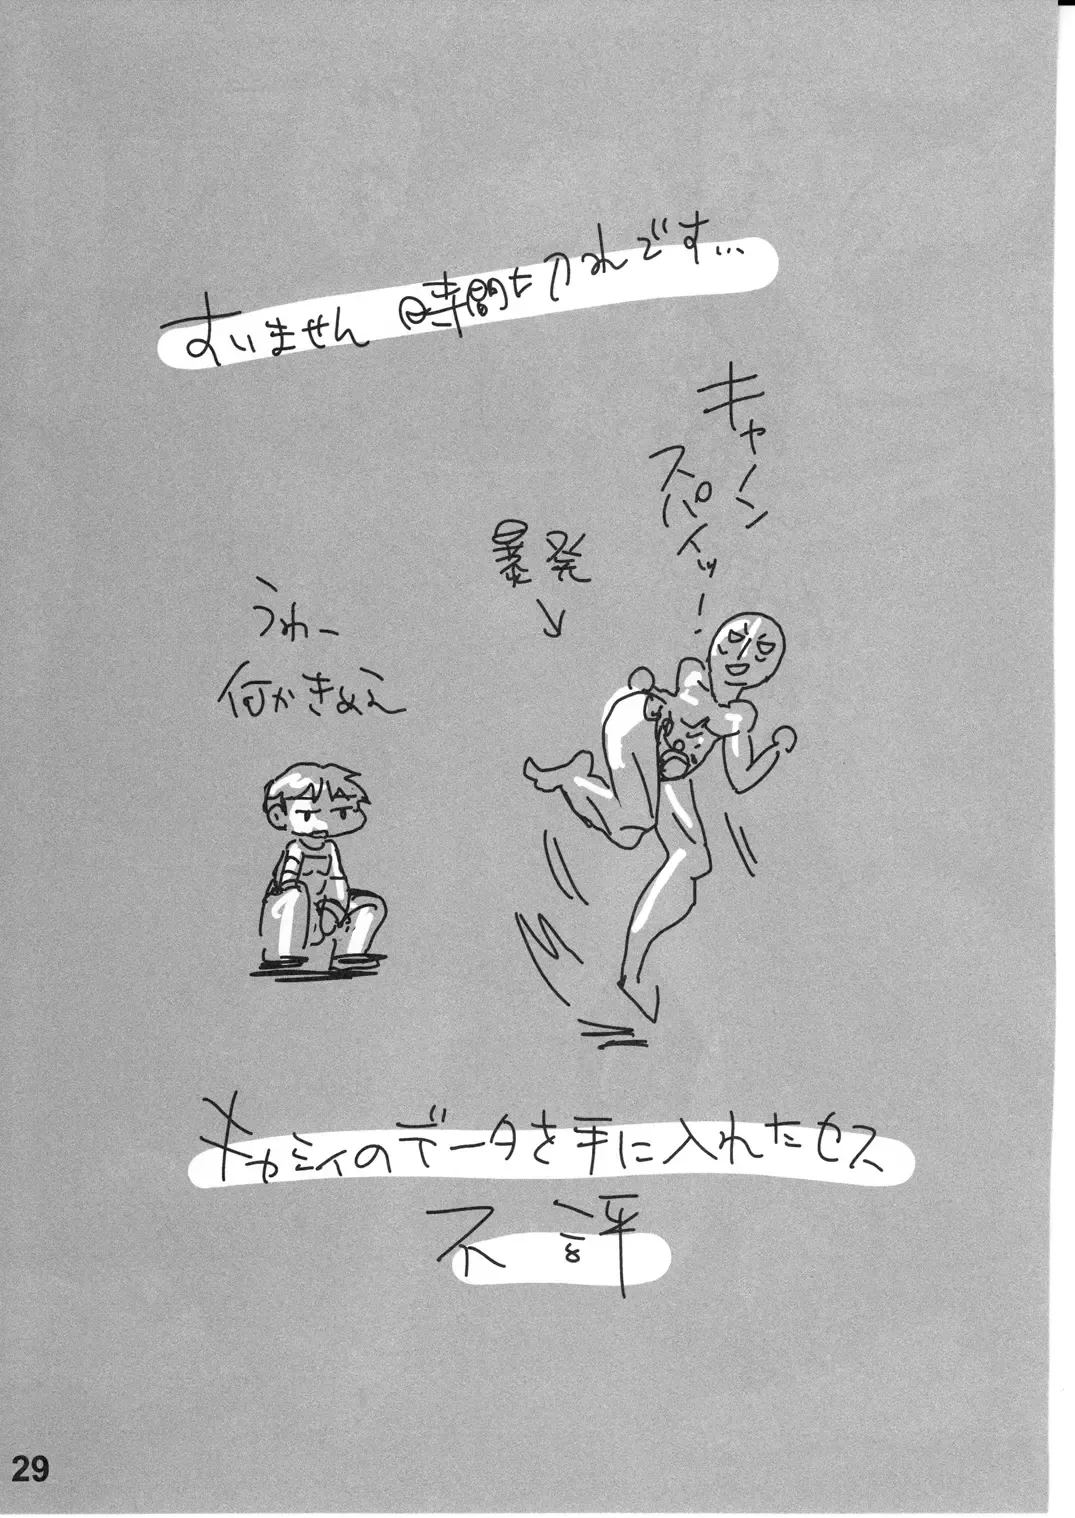 すいません 時間切れです…
キャノン
スパイッ!
暴発
うわー
何かきめえ
キャミィのデータを手に入れたセス
不評
29